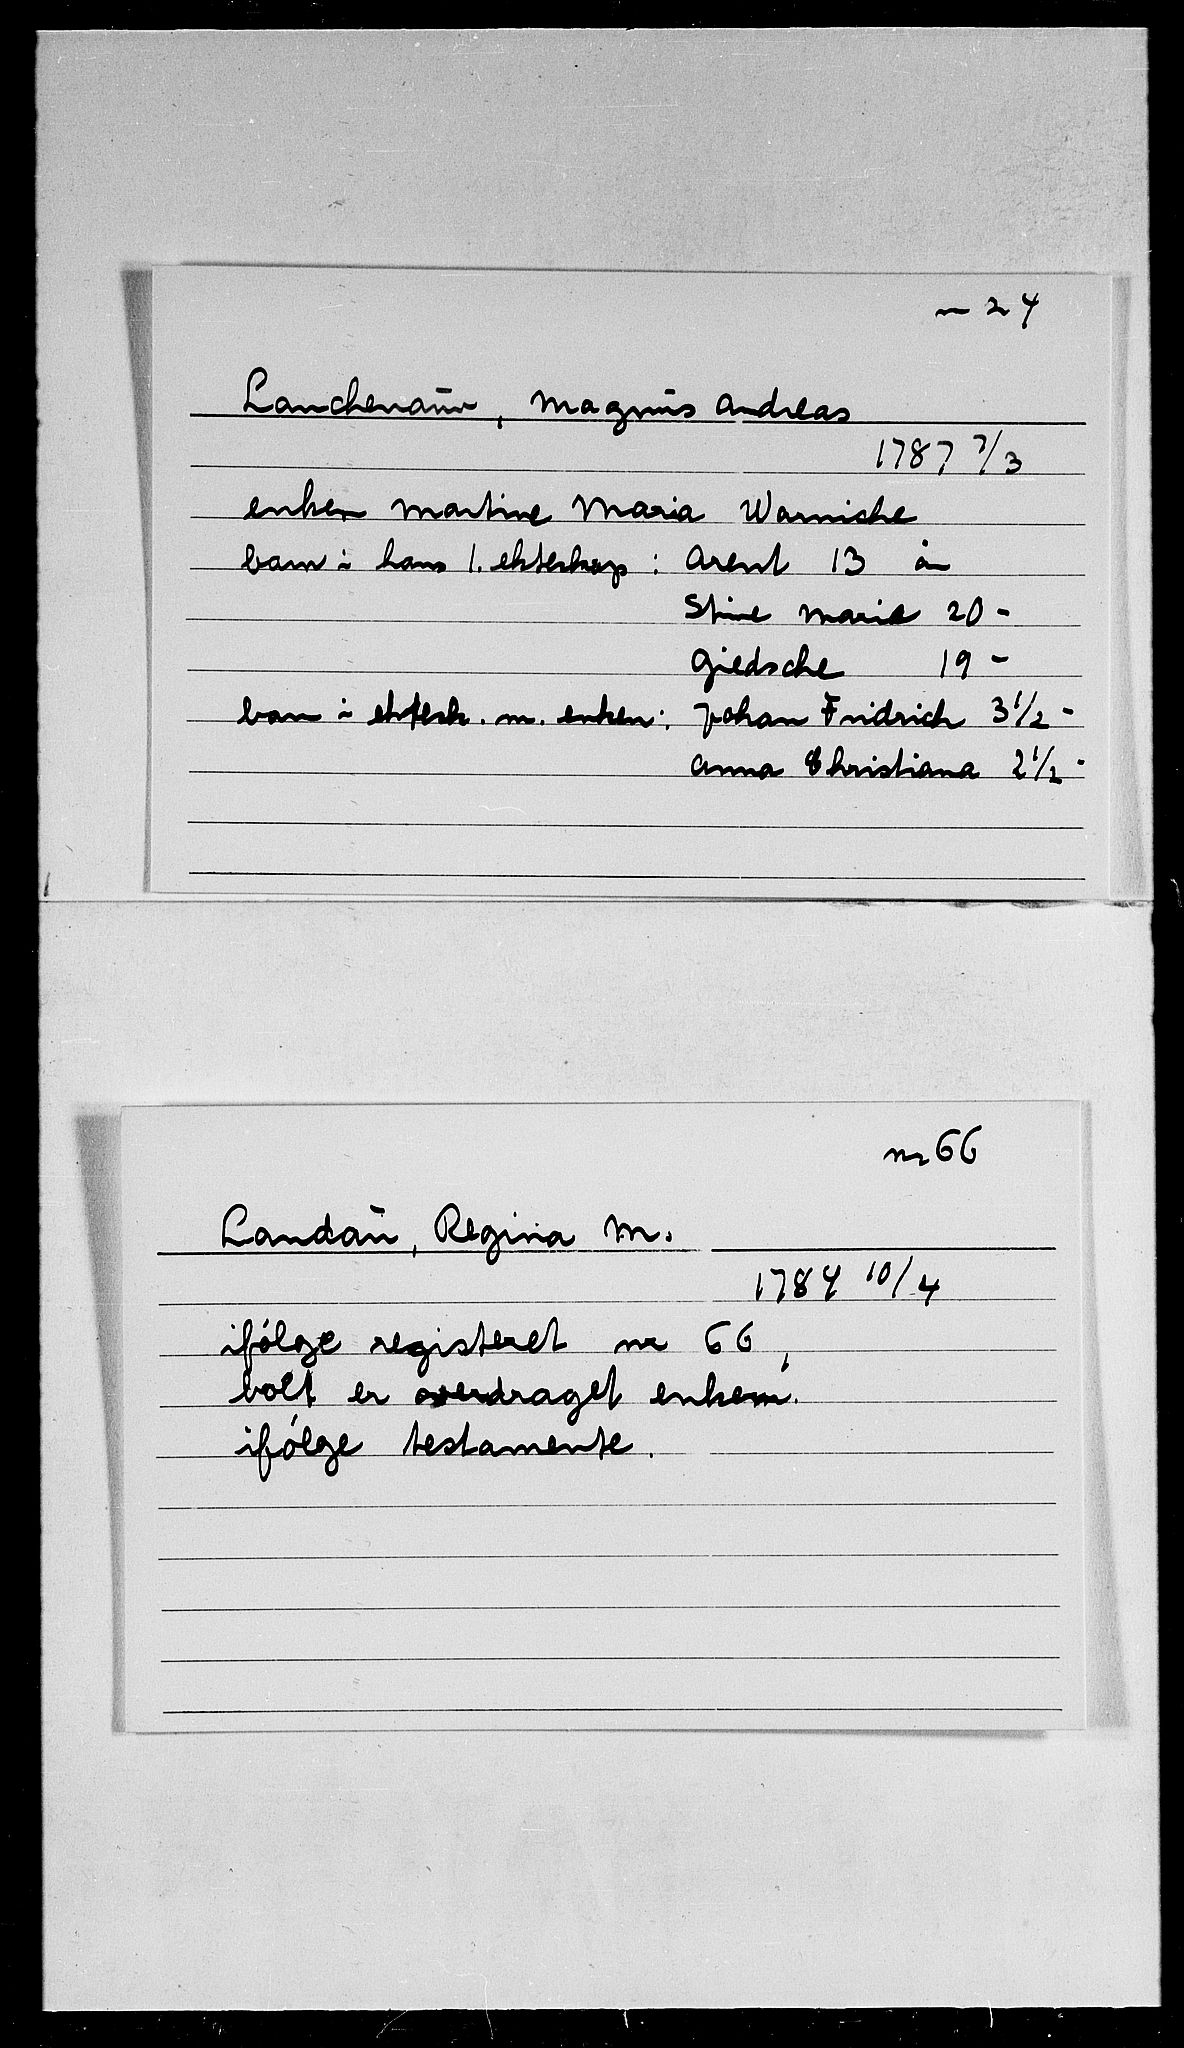 nr 24
Lanchenaŭ, Magnŭs Andreas
1787 7/3
enken Martine Maria Warniche
barn i hans 1. ekteskap: Arent 13 år
Stine Marie 20 -
Giedsche 19 -
barn i ektesk. m. enken: Johan Fridrich 3 1/2 -
Anna Christiana 2 1/2 -
nr 66
Landaŭ, Regina M.
1784 10/4
ifólge registeret nr 66,
bolt er overdraget enkem.
ifólge testamente.